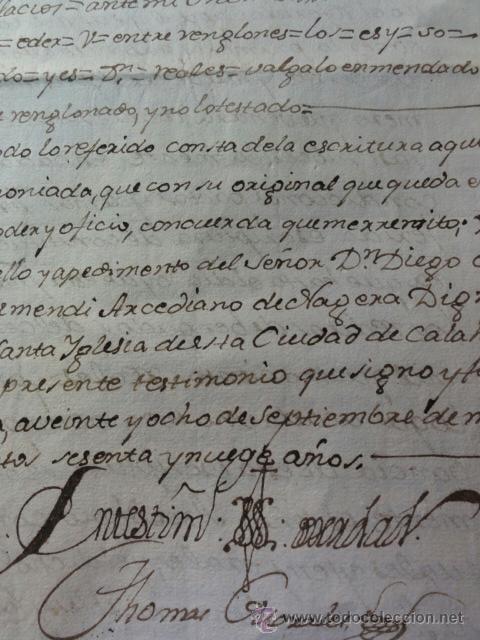 lacion = ante mi
= eder = V = entre renglones = los = es y = so =
do = y es = Dn. = reales = valga lo enmendado
renglonado, y no lo testado =
odo lo referido consta de la escritura aqu
moniada, que con su original que queda e
oder y oficio, concuerda que me rremito;
ello y apedimento del Señor Dn. Diego
mendi Arcediano de Nagera Dign
Santa Yglesia de esta Ciudad de Calah
presente testimonio que signo y f
a, a veinte y ocho de septiembre de m
tos sesenta y nuebe años.
En testim. de verdad
Thomas
www.todocoleccion.net